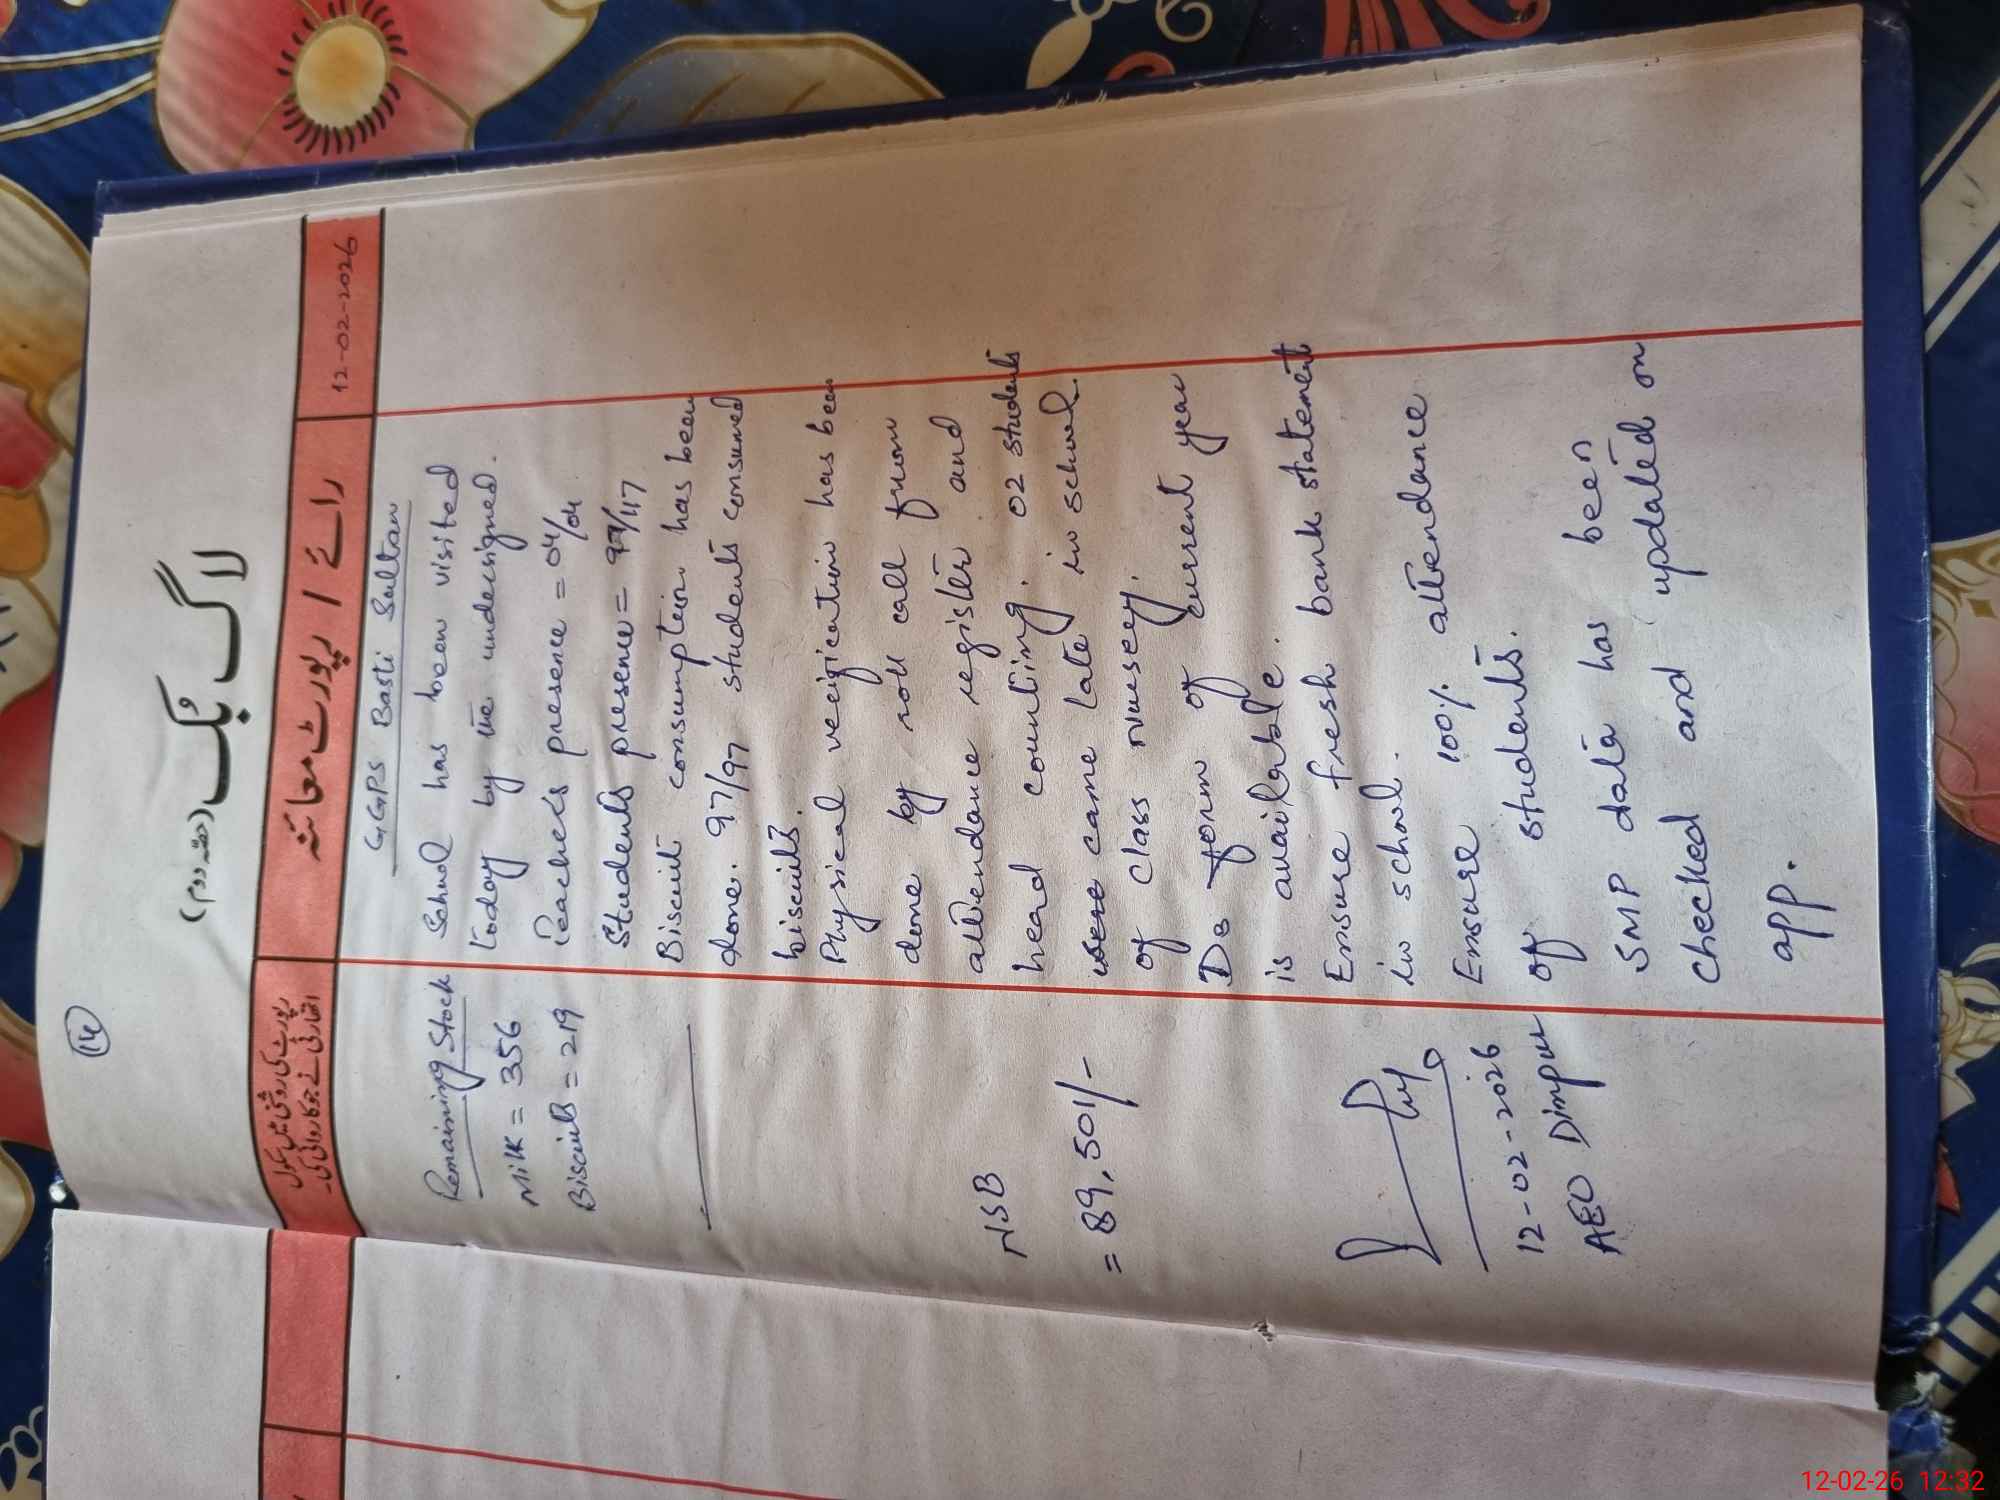 14
لاگ بُک (حصہ دوم)
رپورٹ کی روشنی میں سکول
اتھارٹی نے جو کاروائی کی۔
رائے / رپورٹ معائنہ
12-02-2026
GGPS Basti Sultan
School has been visited
today by the undersigned.
Teachers presence = 04/04
Students presence = 97/117
Biscuit consumption has been
done. 97/97 students consumed
biscuits.
Physical verification has been
done by roll call from
attendance register and
head counting. 02 students
were came late in school
of class nursery.
Ds form of current year
is available.
Ensure fresh bank statement
in school.
Ensure 100% attendance
of students.
SMP data has been
checked and updated on
app.
Remaining Stock
Milk = 356
Biscuits = 219
NSB
= 89,501/-
12-02-2026
AEO Dimpur
12-02-26 12:32